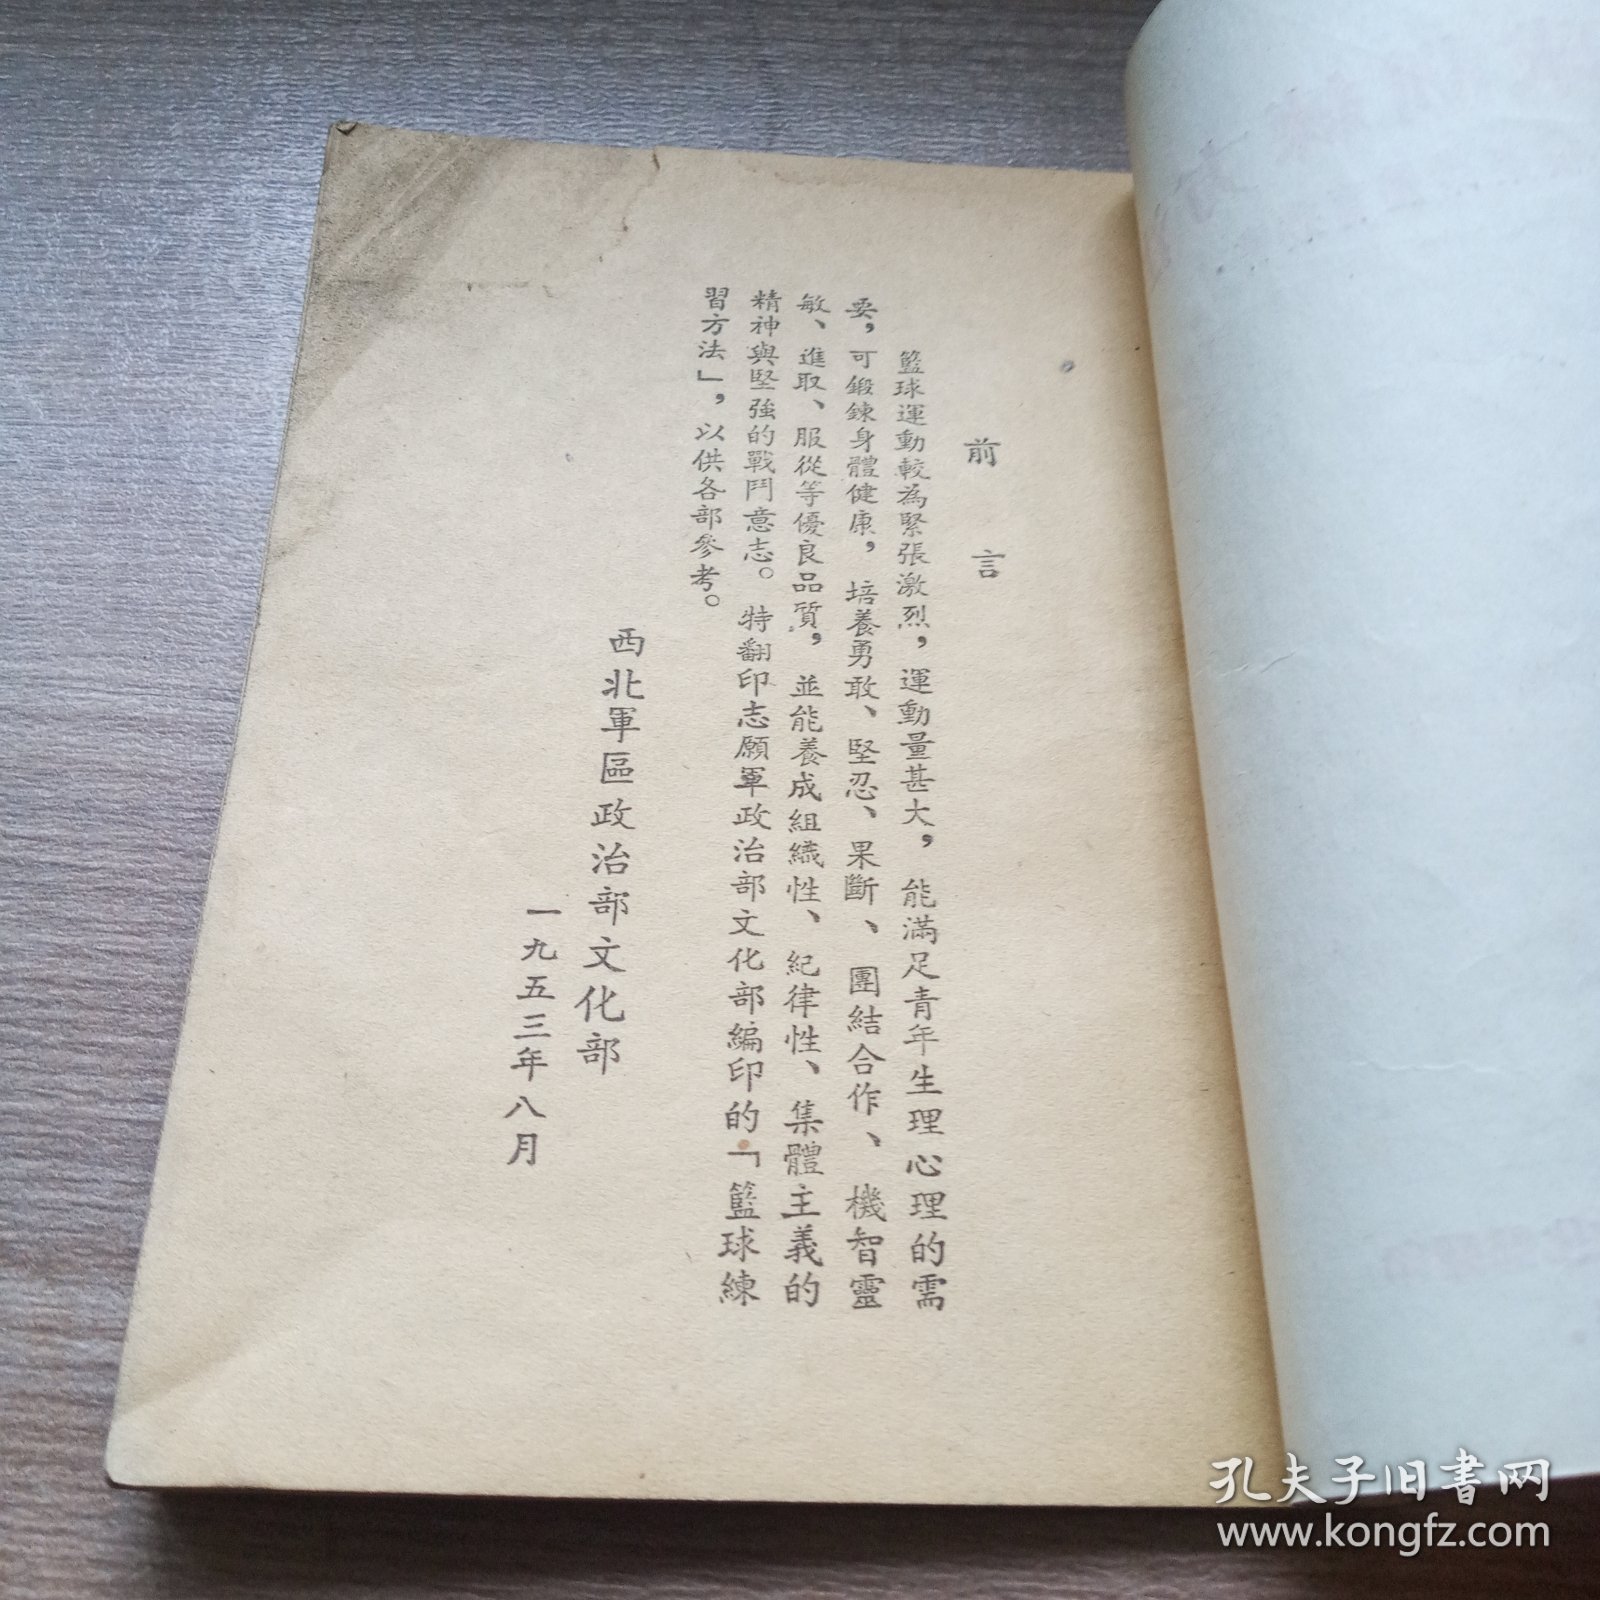 前言
籃球運動較為緊張激烈，運動量甚大，能滿足青年生理心理的需
要，可鍛鍊身體健康，培養勇敢、堅忍、果斷、團結合作、機智靈
敏、進取、服從等優良品質，並能養成組織性、紀律性、集體主義的
精神與堅強的戰鬥意志。特翻印志願軍政治部文化部編印的「籃球練
習方法」，以供各部參考。
西北軍區政治部文化部
一九五三年八月
孔夫子旧书网
www.kongfz.com